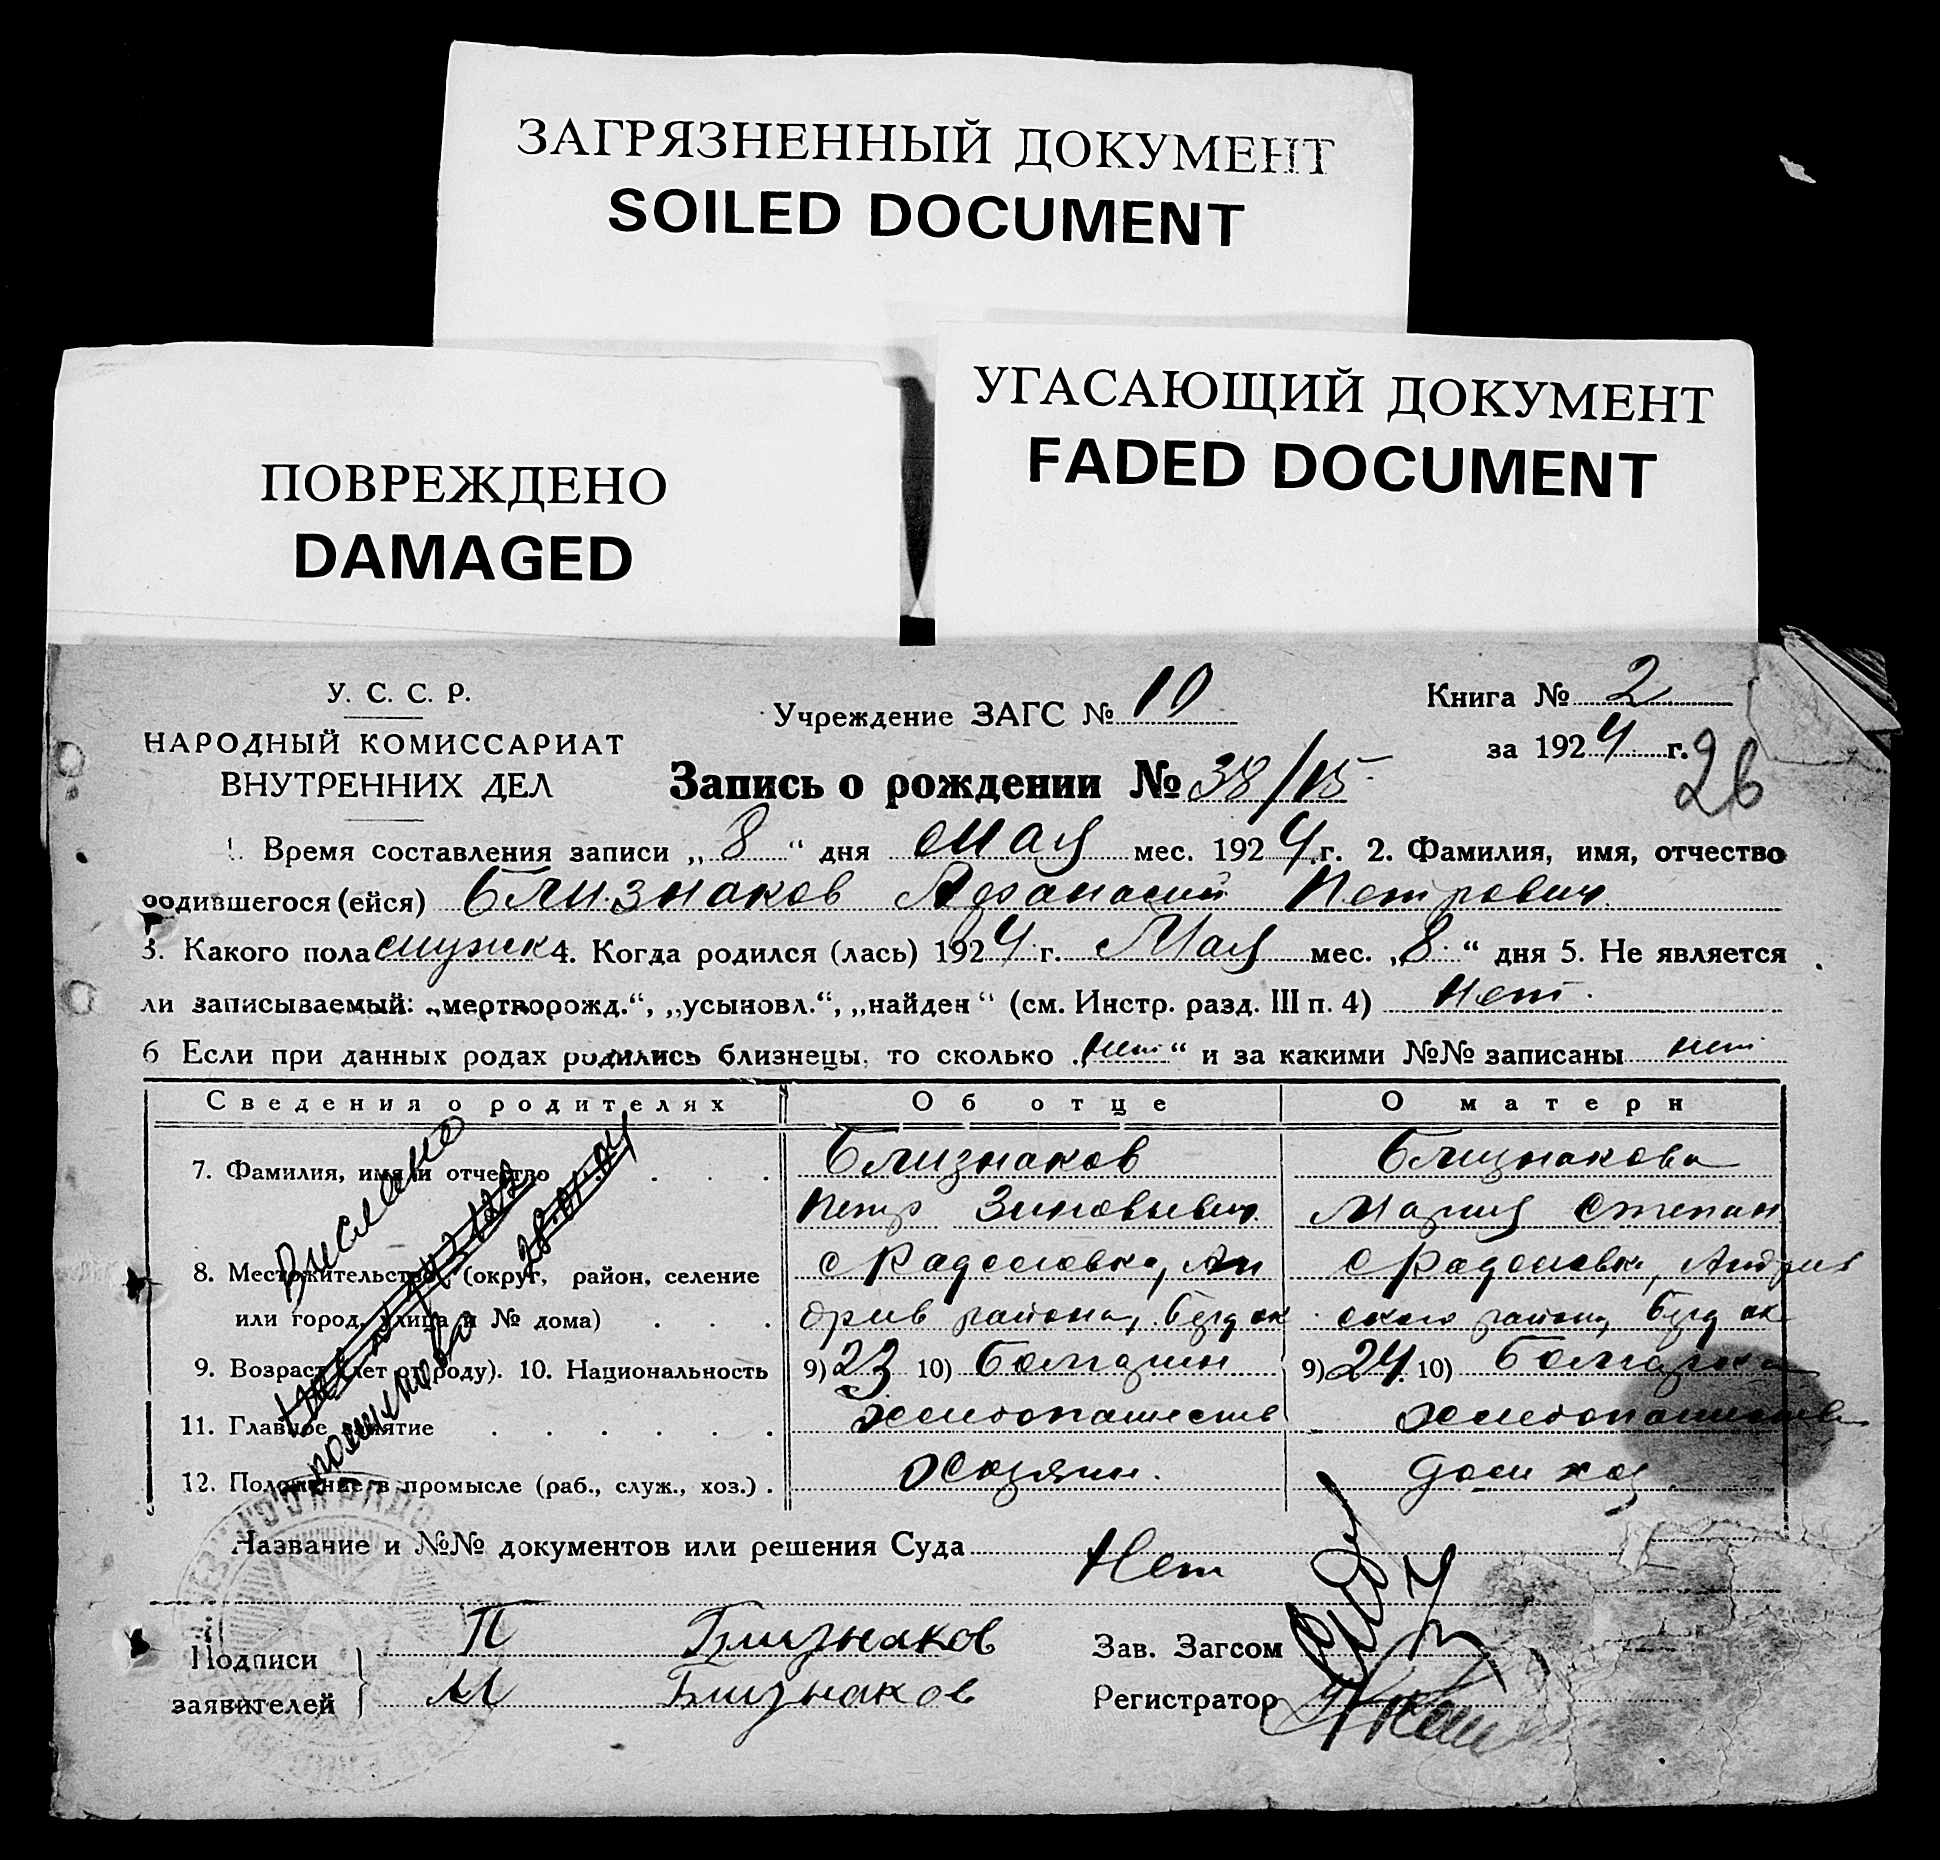 ЗАГРЯЗНЕННЫЙ ДОКУМЕНТ
SOILED DOCUMENT
ПОВРЕЖДЕНО
DAMAGED
УГАСАЮЩИЙ ДОКУМЕНТ
FADED DOCUMENT
У. С. С. Р.
НАРОДНЫЙ КОМИССАРИАТ
ВНУТРЕННИХ ДЕЛ
Учреждение ЗАГС № 10
Книга № 2
за 1924 г.
26
Запись о рождении № 38/15
1. Время составления записи „8“ дня мая мес. 1924 г. 2. Фамилия, имя, отчество
родившегося (ейся) Близнаков Афанасий Петрович
3. Какого пола мужск 4. Когда родился (лась) 1924 г. Мая мес. „8“ дня 5. Не является
ли записываемый: „мертворожд.“, „усыновл.“, „найден“ (см. Инстр. разд. III п. 4) Нет.
6 Если при данных родах родились близнецы, то сколько „нет“ и за какими №№ записаны нет
Сведения о родителях Об отце О матери
7. Фамилия, имя и отчество Близнаков Близнакова
Петр Зиновьевич Мария Степан
8. Местожительство (округ, район, селение с Радоловка, Ан с Радоловк, Андрив
или город, улица и № дома) дрив района, Бердок ского района, Бердок
9. Возраст (лет от роду). 10. Национальность 9) 23 10) Болгарин 9) 24 10) Болгарка
11. Главное занятие хлебопашеств хлебопашеств
12. Положение в промысле (раб., служ., хоз.) . Хозяин. дом хоз
Выслано
Название и №№ документов или решения Суда Нет
Подписи
заявителей
П Близнаков
М Близнаков
Зав. Загсом
Регистратор